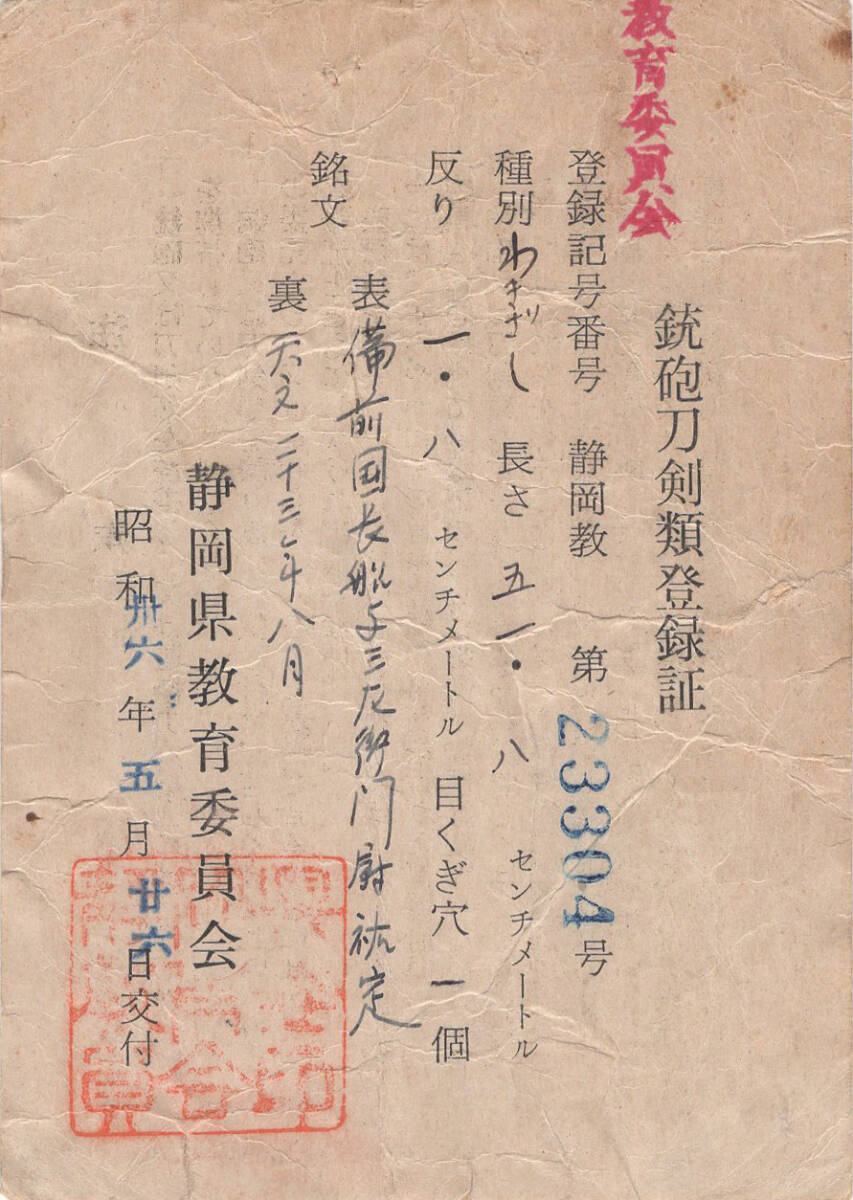 教育委員会
銃砲刀剣類登録証
登録記号番号 静岡教 第23304号
種別 わきざし 長さ 五一・八 センチメートル
反り 一・八 センチメートル 目くぎ穴 一個
銘文
表 備前国長船与三左衛門尉祐定
裏 天文二十三年八月
静岡県教育委員会
昭和卅六年五月廿六日交付